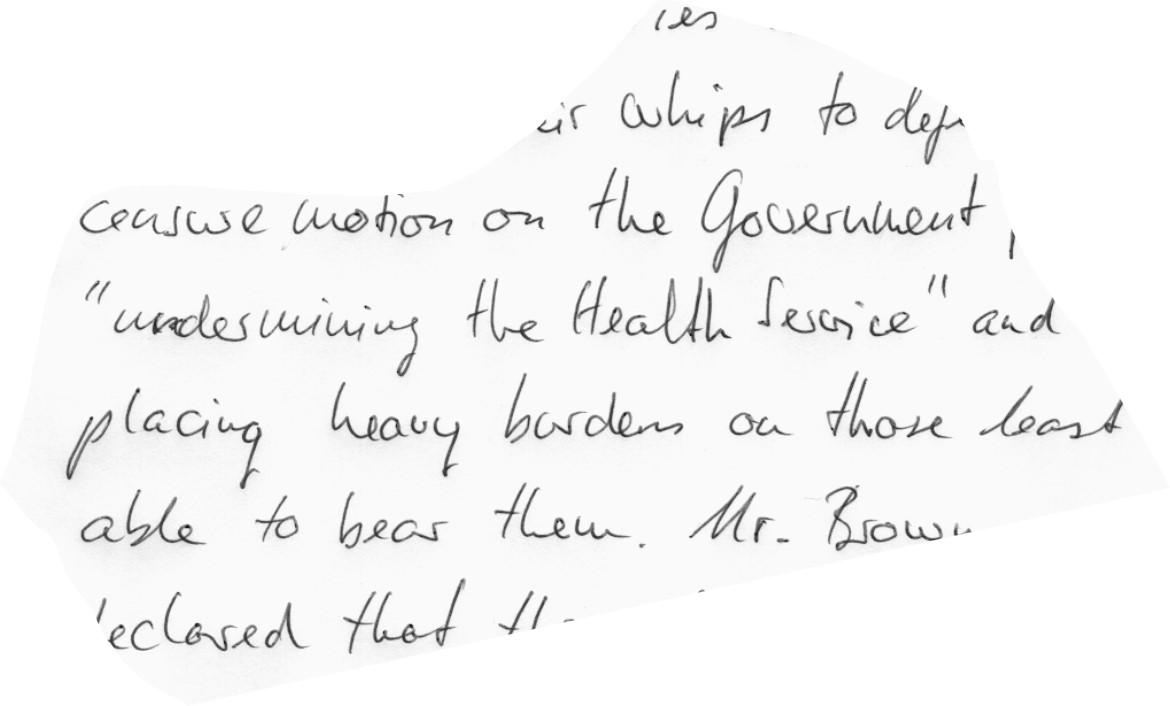 whips to
censure motion on the Government
"undermining the Health Service" and
placing heavy burdens on those least
able to bear them. Mr. Brown
that